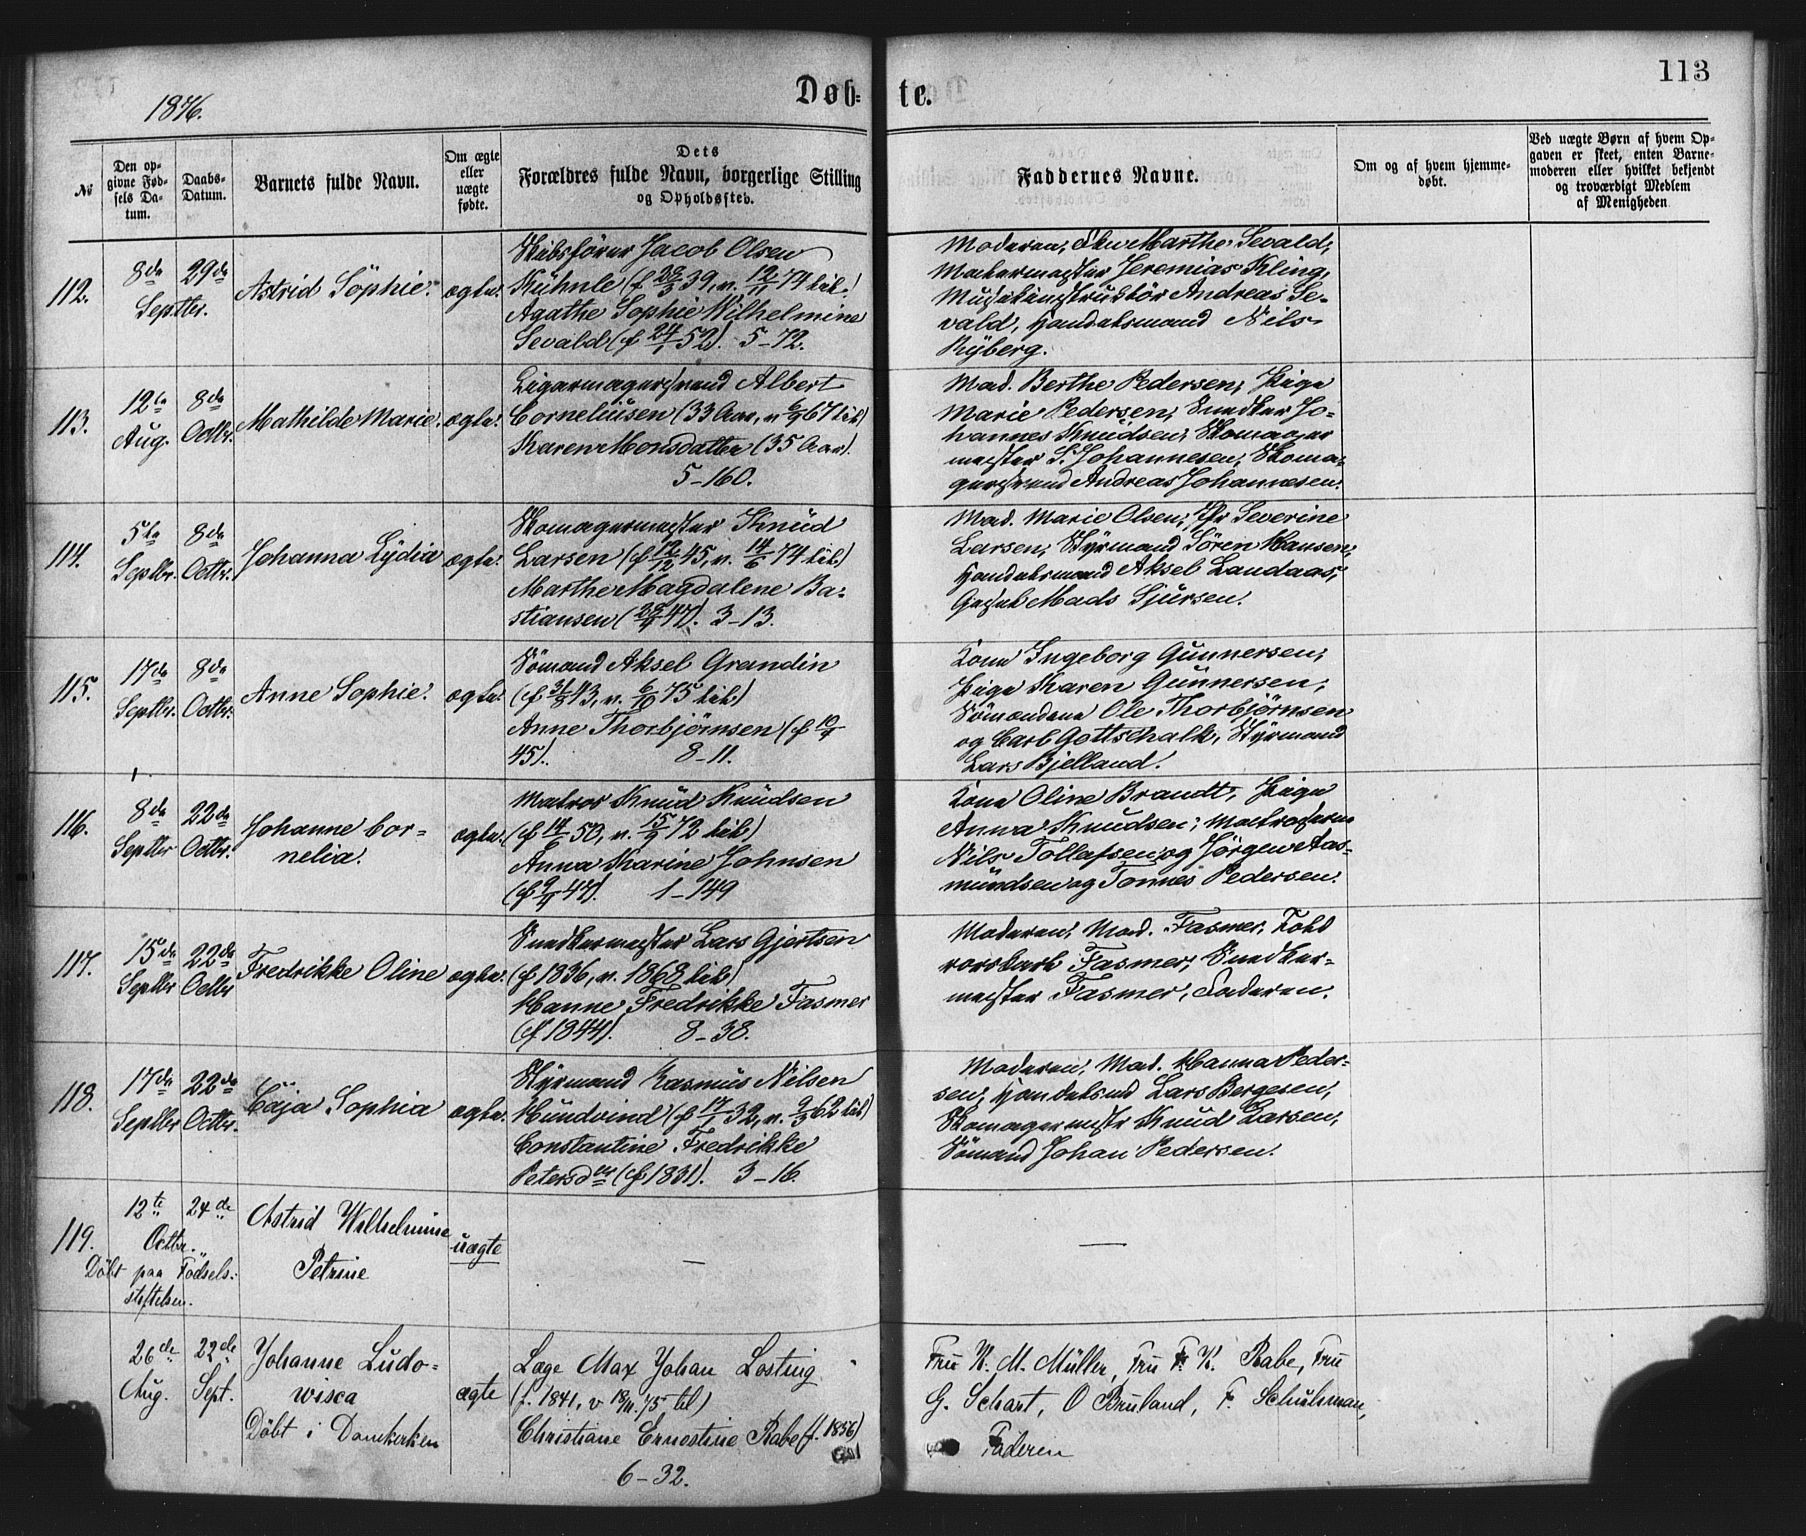 113
1876.
Døb- te.
№
Den opgivne Fødsels Datum.
Daabs-Datum.
Barnets fulde Navn.
Om ægte eller uægte fødte.
Dets Forældres fulde Navn, borgerlige Stilling og Opholdssted.
Faddernes Navne.
Om og af hvem hjemmedøbt.
Ved uægte Børn af hvem Opgaven er skeet, enten Barnemoderen eller hvilket bekjendt og troværdigt Medlem af Menigheden
112. 8de Septbr. 29de Astrid Sophie. ægte.
Skibsfører Jacob Olsen
Kühnle (f 28/3 39, v. 12/11 74 til)
Agathe Sophie Wilhelmine
Sevald (f 24/1 52). 5-72.
Moderen, Marthe Sevald,
Malermester Jeremias Kling,
Musikinstruktör Andreas Se-
vald, Handelsmand Nils
Ryberg.
113. 12te Aug. 8de Octbr. Mathilde Marie. ægte.
Cigarmagersvend Albert
Corneliusen (33 Aar, v 6/9 67 til)
Karen Monsdatter (35 Aar).
5-160.
Mad. Berthe Pedersen, Pige
Marie Pedersen, Snedker Jo-
hannes Knüdsen, Skomager
mester S. Johannesen, Skoma-
gersvend Andreas Johannesen.
114. 5te Septbr. 8de Octbr. Johanna Lydia ægte.
Skomagermester Knüd
Larsen (f 12/12 45, v. 14/6 74 til)
Marthe Magdalene Ba-
stiansen (28/4 47). 3-13.
Mad. Marie Olsen, Jfr Severine
Larsen, Styrmand Sören Hansen,
Handelsmand Aksel Landaas,
Mads Sjursen.
115. 17de Septbr. 8de Octbr. Anne Sophie. ægte.
Sömand Aksel Grandin
(f 31/8 43, v. 6/10 75 til)
Anne Thorbjörnsen (f 19/4
45). 8-11.
Kone Ingeborg Gunnersen,
Pige Karen Gunnersen,
Sömændene Ole Thorbjörnsen
og Carl Gottschalk, Styrmand
Lars Bjelland.
116. 8de Septbr 22de Octbr. Johanne Cor-
nelia. ægte.
Matros Knüd Knüdsen
(f 14/6 50, v. 15/9 72 til)
Anna Karine Johnsen
(f 9/4 47). 1-149
Kone Oline Brandt, Pige
Anna Knudsen, Matroserne
Nils Tollafsen og Jörgen Aas-
mündsen og Tönnes Pedersen.
117. 15de Septbr 22de Octbr Fredrikke Oline ægte.
Snedkermester Lars Gjertsen
(f 1836, v. 1868 til)
Hanne Fredrikke Fasmer
(f 1844). 8-38.
Moderen, Mad. Fasmer, Told
rorskarl Fasmer, Snedker-
mester Fasmer, Faderen.
118. 17de Septbr 22de Octbr. Caja Sophia ægte.
Styrmand Rasmus Nilsen
Hundvind (f 17/1 32, v. 9/3 62 til)
Constantine Fredrikke
Petersdtr (f 1831). 3-16.
Moderen, Mad. Hanna Peder-
sen, Handelsmd Lars Bergesen,
Skomagermestr Knud Larsen,
Sömand Johan Pedersen.
119. 12te 24de Octbr. Astrid Wilhelmine
Petrine uægte — —
Döbt paa Födsels-
stiftelsen.
26de Aug. 22de Sept. Johanne Ludo-
wisca ægte
Döbt i Domkirken
Læge Max Johan Losting
(f. 1841, v 18/11. 75 til)
Christiane Ernestine Rabe (f. 1856)
6-32.
Fru K. M. Müller, Fru F. K. Rabe, Fru
G. Schart, O Bruland, F. Schulsman,
Faderen